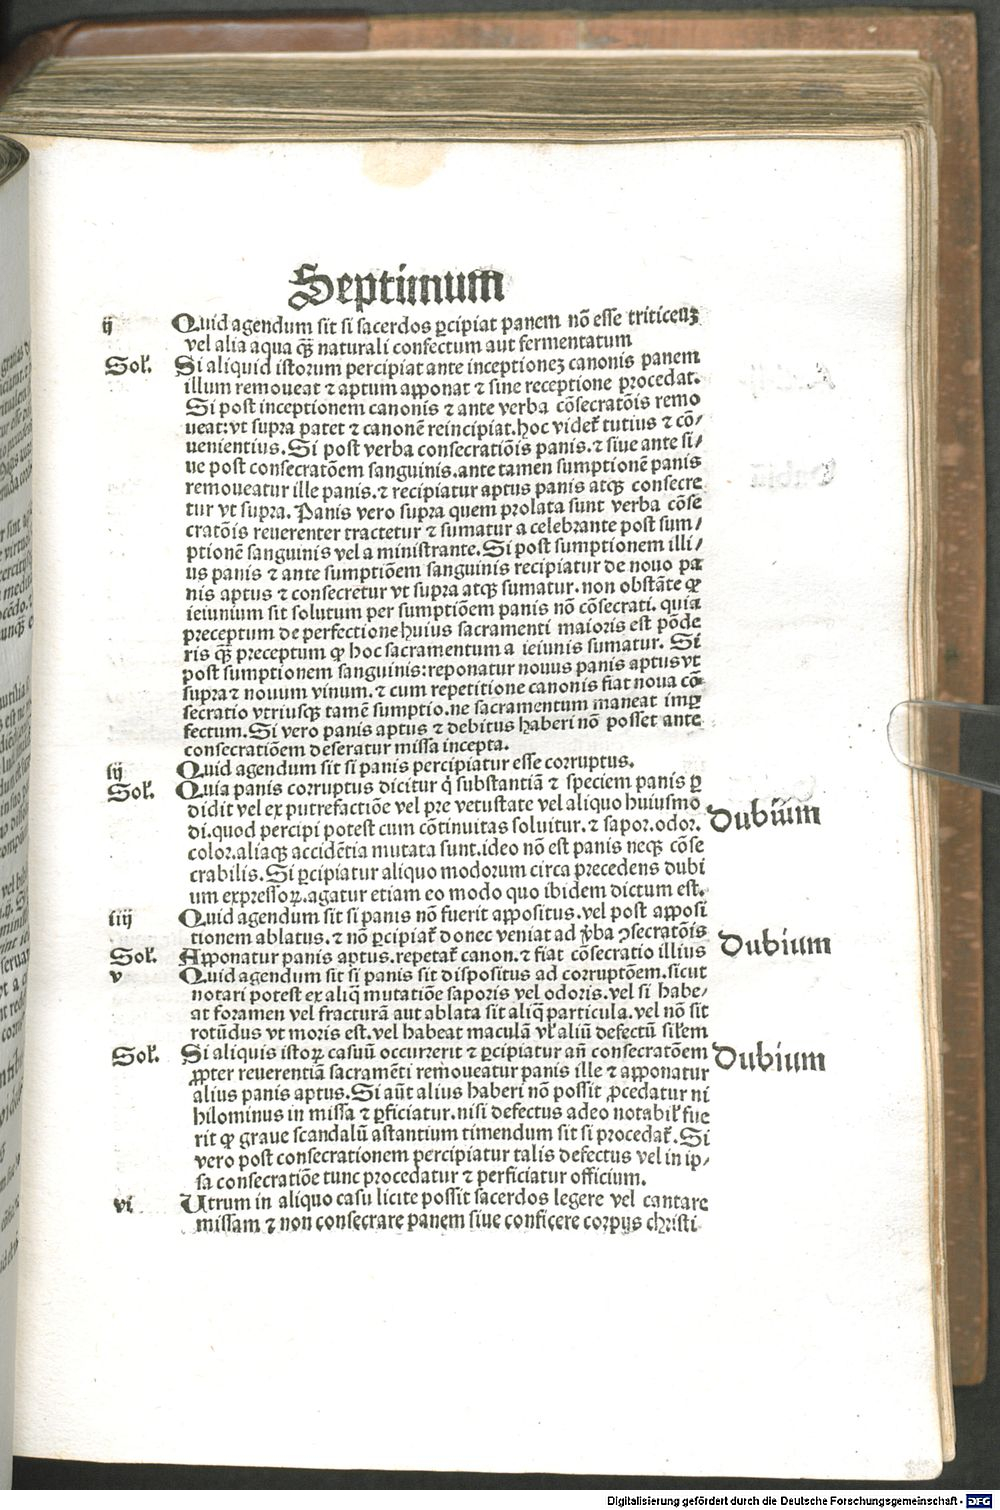 Septimum
ij Quid agendum sit si sacerdos ꝑcipiat panem nō esse triticeuꝫ
vel alia aqua qꝫ̄ naturali confectum aut fermentatum
Sol̉. Si aliquid istorum percipiat ante inceptioneꝫ canonis panem
illum remoueat ⁊ aptum apponat ⁊ sine receptione procedat.
Si post inceptionem canonis ⁊ ante verba cōsecratōis remo
ueat: vt supra patet ⁊ canonē reincipiat. hoc videt̉ tutius ⁊ cō/
uenientius. Si post verba consecratiōis panis. ⁊ siue ante si/
ue post consecratōem sanguinis. ante tamen sumptionē panis
remoueatur ille panis. ⁊ recipiatur aptus panis atqꝫ consecre
tur vt supra. Panis vero supra quem prolata sunt verba cōse
cratōis reuerenter tractetur ⁊ sumatur a celebrante post sum/
ptionē sanguinis vel a ministrante. Si post sumptionem illi/
us panis ⁊ ante sumptiōem sanguinis recipiatur de nouo pa
nis aptus ⁊ consecretur vt supra atqꝫ sumatur. non obstāte ꝙ
ieiunium sit solutum per sumptiōem panis nō cōsecrati. quia
preceptum de perfectione huius sacramenti maioris est pōde
ris qꝫ̄ preceptum ꝙ hoc sacramentum a ieiunis sumatur. Si
post sumptionem sanguinis: reponatur nouus panis aptus vt
supra ⁊ nouum vinum. ⁊ cum repetitione canonis fiat noua cō
secratio vtriusqꝫ tamē sumptio. ne sacramentum maneat imꝑ
fectum. Si vero panis aptus ⁊ debitus haberi nō posset ante
consecratiōem deseratur missa incepta.
iij Quid agendum sit si panis percipiatur esse corruptus.
Sol̉. Quia panis corruptus dicitur q̇ substantiā ⁊ speciem panis ꝑ
didit vel ex putrefactiōe vel pre vetustate vel aliquo huiusmo
di. quod percipi potest cum cōtinuitas soluitur. ⁊ sapor. odor. Dubium
color. aliaqꝫ accidētia mutata sunt. ideo nō est panis neqꝫ cōse
crabilis. Si ꝑcipiatur aliquo modorum circa precedens dubi
um expressoꝝ. agatur etiam eo modo quo ibidem dictum est.
iiij Quid agendum sit si panis nō fuerit appositus. vel post apposi
tionem ablatus. ⁊ nō ꝑcipiat̉ donec veniat ad v̓ba ↄsecratōis Dubium
Sol̉. Apponatur panis aptus. repetat̉ canon. ⁊ fiat cōsecratio illius
v Quid agendum sit si panis sit dispositus ad corruptōem. sicut
notari potest ex aliq̄ mutatiōe saporis vel odoris. vel si habe/
at foramen vel fracturā aut ablata sit aliq̄ particula. vel nō sit
rotūdus vt moris est. vel habeat maculā vl̉ aliū defectū sil̉em
Sol̉. Si aliquis istoꝝ casuū occurrerit ⁊ ꝑcipiatur an̄ consecratōem Dubium
ꝓpter reuerentiā sacramēti remoueatur panis ille ⁊ apponatur
alius panis aptus. Si aūt alius haberi nō possit ꝓcedatur ni
hilominus in missa ⁊ ꝑficiatur. nisi defectus adeo notabil̉ fue
rit ꝙ graue scandalū astantium timendum sit si procedat̉. Si
vero post consecrationem percipiatur talis defectus vel in ip/
sa consecratiōe tunc procedatur ⁊ perficiatur officium.
vi Utrum in aliquo casu licite possit sacerdos legere vel cantare
missam ⁊ non consecrare panem siue conficere corpus christi
Digitalisierung gefördert durch die Deutsche Forschungsgemeinschaft - DFG